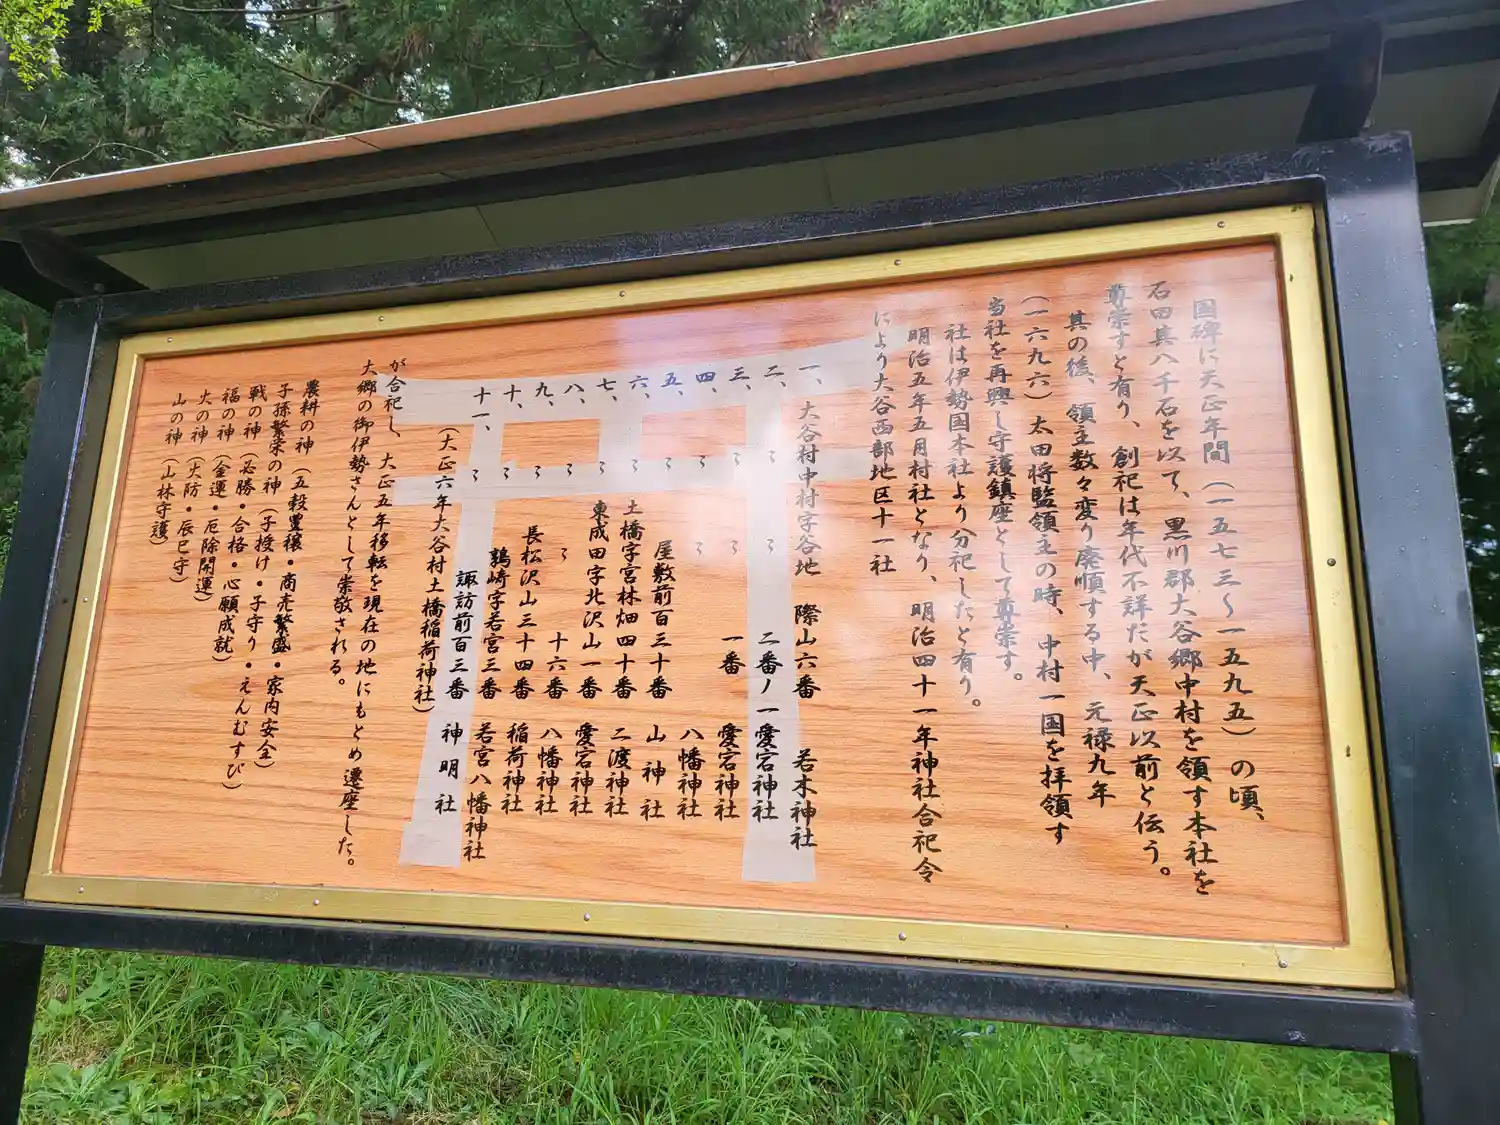 国碑に天正年間（一五七三～一五九五）の頃、
石田其八千石を以て、黒川郡大谷郷中村を領す本社を
尊崇すと有り、創祀は年代不詳だが天正以前と伝う。
其の後、領主数々変り廃順する中、元禄九年
（一六九六）太田将監領主の時、中村一国を拝領す
当社を再興し守護鎮座として尊崇す。
社は伊勢国本社より分祀したと有り。
明治五年五月村社となり、明治四十一年神社合祀令
により大谷西部地区十一社
一、大谷村中村字谷地 際山六番 若木神社
二、〃 〃 二番ノ一 愛宕神社
三、〃 〃 一番 愛宕神社
四、〃 〃 八幡神社
五、〃 屋敷前百三十番 山神社
六、〃 土橋字宮林畑四十番 二渡神社
七、〃 東成田字北沢山一番 愛宕神社
八、〃 〃 十六番 八幡神社
九、〃 長松沢山三十四番 稲荷神社
十、〃 鶉崎字若宮三番 若宮八幡神社
十一、〃 諏訪前百三番 神明社
（大正六年大谷村土橋稲荷神社）
が合祀し、大正五年移転を現在の地にもとめ遷座した。
大郷の御伊勢さんとして崇敬される。
農耕の神（五穀豊穣・商売繁盛・家内安全）
子孫繁栄の神（子授け・子守り・えんむすび）
戦の神（必勝・合格・心願成就）
福の神（金運・厄除開運）
火の神（火防・辰巳守）
山の神（山林守護）